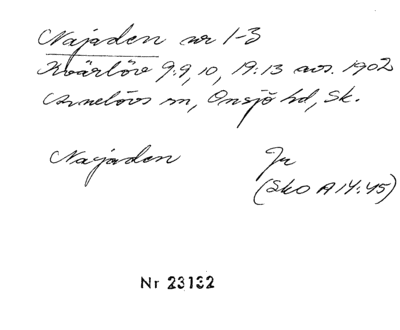 Najaden nr 1-3
Kvärlöv 9:9, 10, 19:13 avs. 1902
Annelövs sn, Onsjö hd, Sk.
Najaden Ju
(Sko A 14:45)
Nr 23132